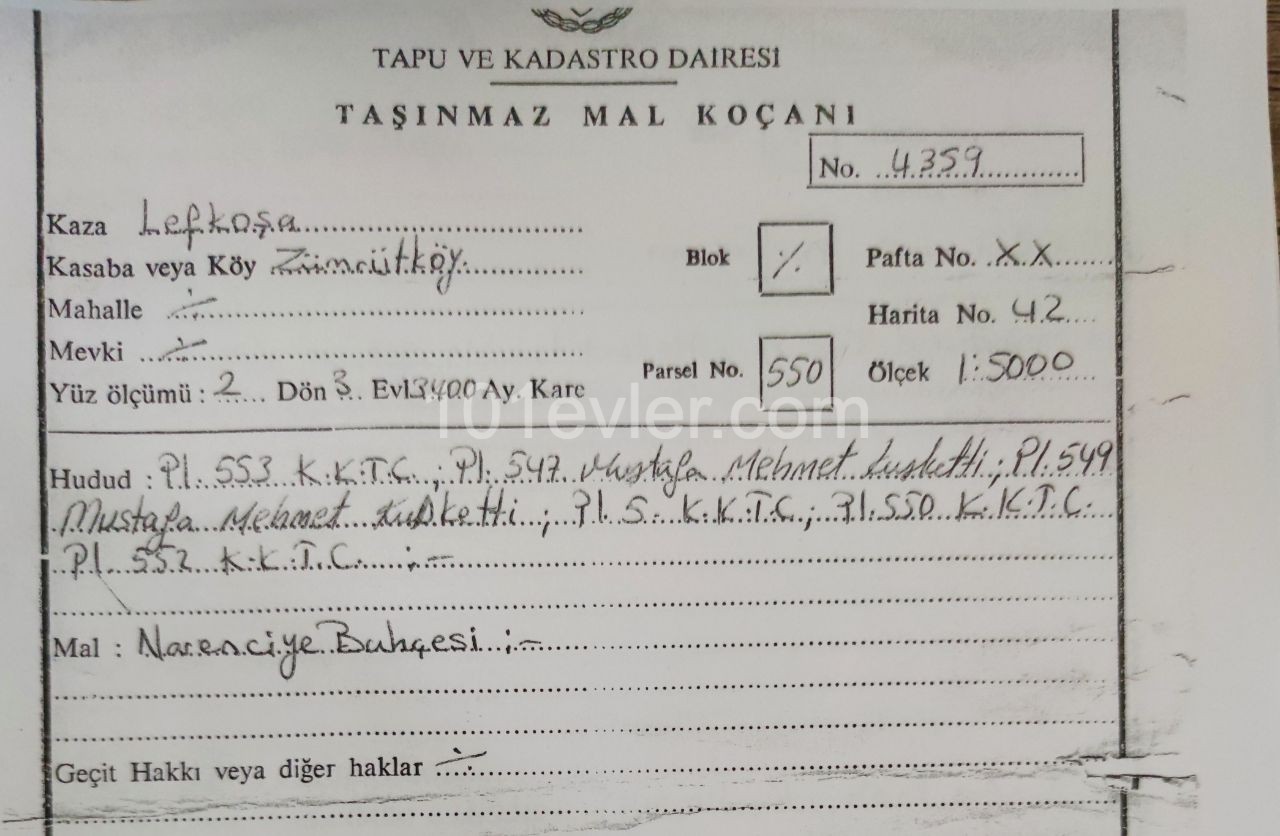 TAPU VE KADASTRO DAİRESİ
TAŞINMAZ MAL KOÇANI
No. 4359
Kaza Lefkoşa
Kasaba veya Köy Zümrütköy
Blok ٪ Pafta No. XX
Mahalle ÷
Harita No. 42
Mevki ÷
Parsel No. 550 Ölçek 1:5000
Yüz ölçümü : 2 Dön 3 Evl 3400 Ay. Kare
101evler.com
Hudud : Pl. 553 K.K.T.C.; Pl. 547 Mustafa Mehmet ; Pl. 549
Mustafa Mehmet ; Pl. S. K.K.T.C.; Pl. 550 K.K.T.C.
Pl. 552 K.K.T.C. ;-
Mal : Narenciye Bahçesi ;-
Geçit Hakkı veya diğer haklar ÷